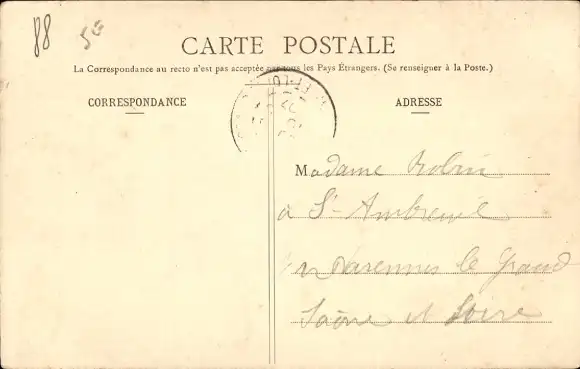 88 5e
CARTE POSTALE
La Correspondance au recto n'est pas acceptée par tous les Pays Étrangers. (Se renseigner à la Poste.)
CORRESPONDANCE
ADRESSE
Madame Robin
à St-Ambreuil
Varennes le Grand
Saône et Loire